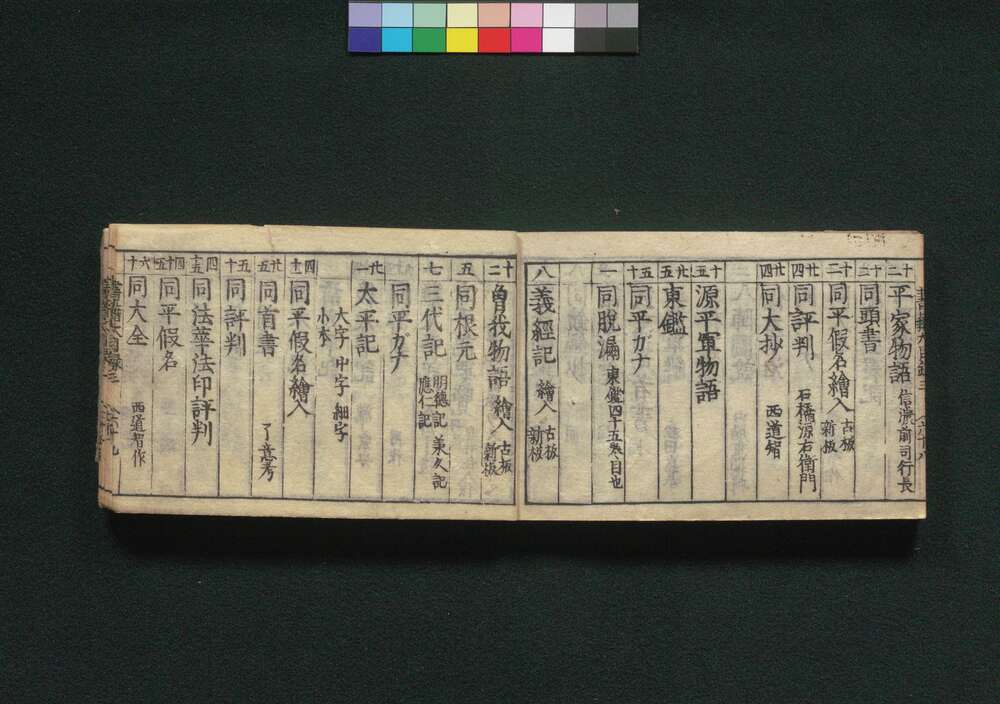 十二 平家物語 信濃前司行長
十二 同頭書
十二 同平假名繪入 古板 新板
廿四 同評判 石橋源右衛門
廿四 同大抄 西道智
十五 源平軍物語
廿五 東鑑
五十 同平カナ
一 同脱漏 東鑑四十五巻目也
八 義經記 繪入 古板 新板
十二 曽我物語 繪入 古板 新板
五 同根元
七 三代記 明德記 應仁記 美久記
同平カナ
廿一 太平記 大字 中字 細字 小本
四十 同平假名繪入
廿五 同首書 了意考
五十 同評判
四十五 同法華法印評判
四十五 同平假名
六十 同大全 西道智作